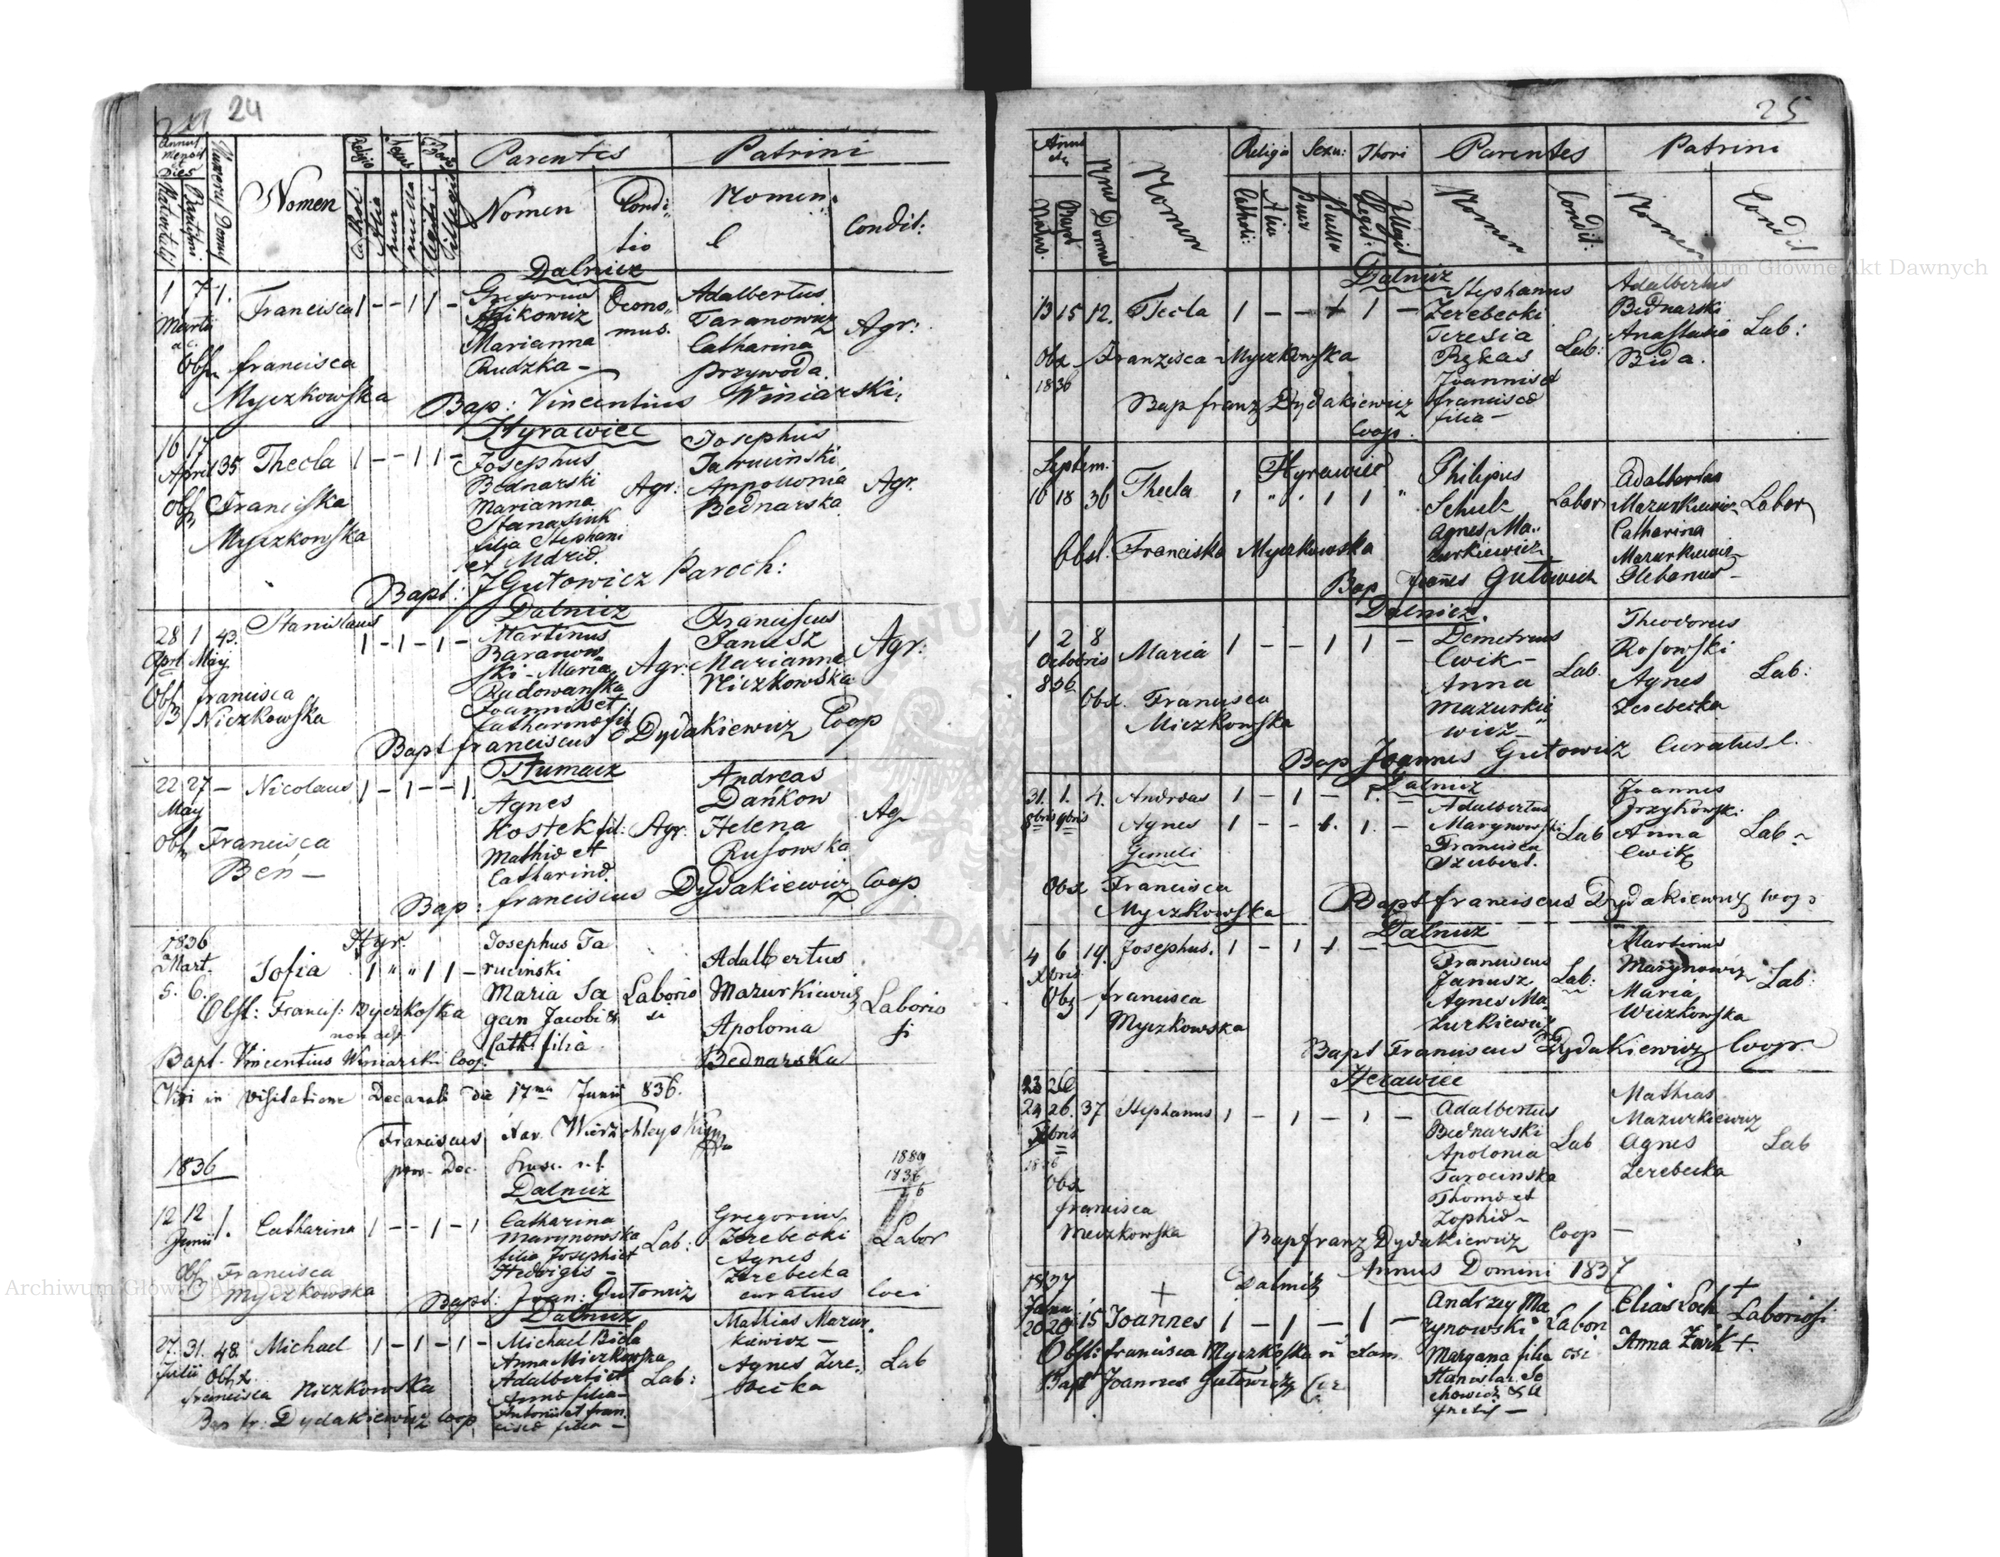 24
Annus mensis dies
Numerus Domus
Nomen
Religio
Sexus
Parentes
Patrini
Nomen
Condi-
tio
Nomen
Condit:
Dalnicz
1 7 1. Francisca 1 - - 1 1 -
Martii
Gregorius
Marianna
Rudzka -
Oecono-
mus.
Adalbertus
Taranowicz
Catharina
Przywoda.
Agr:
Obst francisca
Myczkowska
Bap: Vincentius Winiarski
Hyrawiec
16 17
April 35 Thecla 1 - - 1 1 -
Josephus
Bednarski
Marianna
filia Stephani
et
Agr:
Josephus
Taruciński
Appollonia
Bednarska
Agr.
Obst Franciska
Myczkowska
Bapt: J Gutowicz Paroch:
Dalnicz
28 1 43. Stanislaus 1 - 1 - 1 -
Aprl May.
Martinus
Baranow-
ski - Maria
Radowańska
Joannis et
Catharinæ fil
Agr:
Franciscus
Janusz
Marianna
Niczkowska
Agr:
Obst francisca
Niczkowska
Bapt franciscus Dydakiewicz Coop
Tłumacz
22 27 - Nicolaus 1 - 1 - - 1
May
Agnes
Kostek fil:
Mathiæ et
Catharinæ.
Agr.
Andreas
Dańkow
Helena
Rusowska
Ag
Obst Francisca
Beń -
Bap: franciscus Dydakiewicz Coop
1836
Mart.
5. 6.
Hyr
Sofia 1 " " 1 1 -
Josephus Ta
rucinski
Maria Sa
gan Jacobi et
Cath: filia
Laborio
si
Adalbertus
Mazurkiewicz
Apolonia
Bednarska
Laborio
si
Obst: Francis: Myczkoska
non
Bapt. Vincentius Winiarski Coop.
Visi in Visitatione Decanali die 17ma Junii 836.
Franciscus Xav. Wierzchleyski
1836
Dalnicz
12 12 1. Catharina 1 - - 1 - 1
Junii
Catharina
Marynowska
filia Josephi et
Hedvigis -
Lab:
Gregorius
Zerebecki
Agnes
Zerebecka
Labor
Obst Francisca
Myczkowska
Bapt: Joan: Gutowicz curatus loci
Dalnicz
27. 31. 48. Michael 1 - 1 - 1 -
Julii
Michael Bida
Anna Miczkowska
Adalberti et
Annæ filia -
Antonii et fran.
ciscæ filia -
Lab:
Mathias Mazur-
kiewicz -
Agnes Zere-
becka
Lab
Obst.
francisca Niczkowska
Bap fr: Dydakiewicz Coop
25
Nrus Domus
Nomen
Religio Sexus Thori
Cathol: Alia Puer Puella Legit: Illegit
Parentes
Patrini
Nomen
Condit:
Nomen
Condit
Dalnicz
13 15 12. Tecla 1 - - + 1 -
Stephanus
Zerebecki
Teresia
Rękas
Joannis et
franciscæ
filia -
Lab:
Adalbertus
Bednarski
Anastasia
Bida.
Lab:
Obst Franzisca Myczkowska
1836
Bap franz Dydakiewicz
Coop.
Septem.
16 18 36 Thecla 1 " " 1 1 "
Hyrawiec
Philipus
Schulz
Agnes Ma-
zurkiewicz
Labor
Adalbertus
Mazurkiewicz
Catharina
Mazurkiewicz
Labor
Obst. Franciska Myczkowska
Bap Joannes Gutowicz Plebanus -
Dalnicz.
1 2 8 Maria 1 - - 1 1 -
Octobris
836
Demetrius
Cwik -
Anna
Mazurkie
wicz -
Lab
Theodoreus
Rosowski
Agnes
Zerebecka
Lab:
Obst. Francisca
Miczkowska
Bap Joannes Gutowicz Curatus l.
Dalnicz
31. 1. 4. Andreas 1 - 1 - 1. -
8bris 9bris Agnes 1 - - 1. 1. -
Gemeli
Adalbertus
Marynowski
Francisca
Szubert.
Lab
Joannes
Grzykowski
Anna
Cwik
Lab
Obst Francisca
Myczkowska
Bapt franciscus Dydakiewicz Coop
Dalnicz
4 6 14. Josephus. 1 - 1 +
Xbris
Franciscus
Janusz
Agnes Ma
zurkiewicz
Lab:
Martinus
Marynowicz
Maria
Wiczkowska
Lab:
Obst francisca
Myczkowska
Bapt Franciscus Dydakiewicz Coopr.
Herawiec
23 26
24 26. 37 Stephanus 1 - 1 - 1 -
Xbris
1836
Adalbertus
Bednarski
Apolonia
Tarocinska
Thomæ et
Zophiæ
Lab
Mathias
Mazurkiewicz
Agnes
Zerebecka
Lab
Obst
francisca
Miczkowska
Bap franz Dydakiewicz Coop -
Annus Domini 1837
1827
Janu
20 20 15 Joannes 1 - 1 - 1 -
Dalnicz
Andrzey Ma
rynowski
Margana filia
Stanislai So
chowicz
Labori
osi
Elias Loch +
Anna Zwik +
Laboriosi
Obst: francisca Myczkoska
Bapt Joannes Gutowicz
Archiwum Główne Akt Dawnych
Archiwum Główne Akt Dawnych